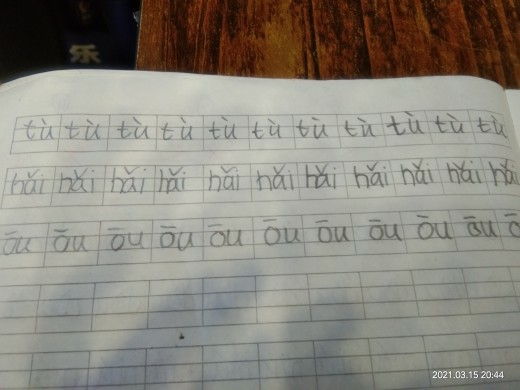 乐
tù tù tù tù tù tù tù tù tù tù tù
hǎi hǎi hǎi hǎi hǎi hǎi hǎi hǎi hǎi hǎi hǎi
ōu ōu ōu ōu ōu ōu ōu ōu ōu ōu
2021.03.15 20:44